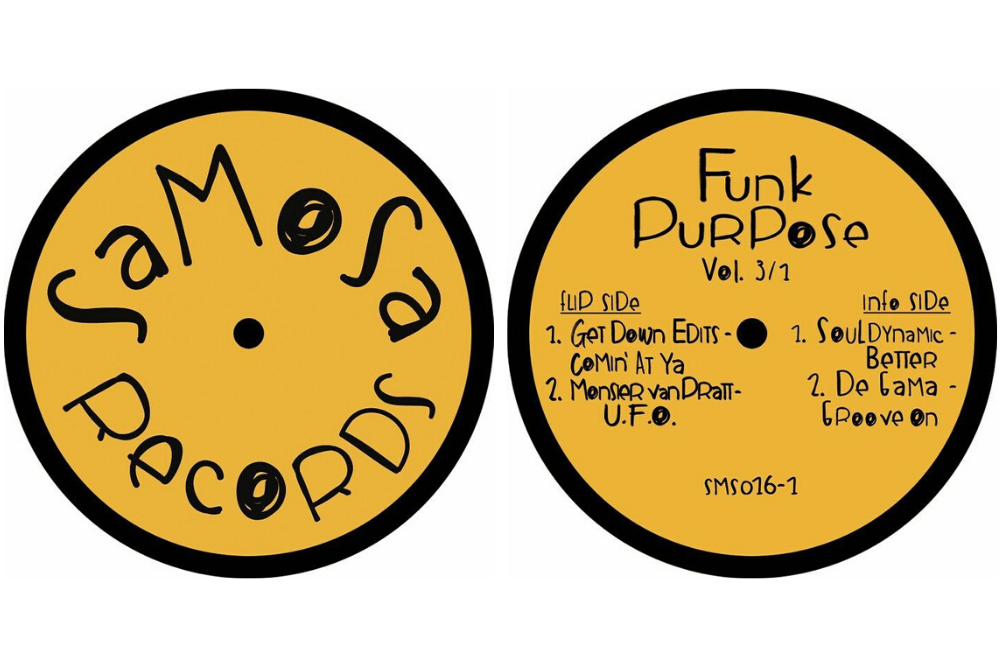 SaMoSa
RecoRDS
Funk
PuRPose
Vol. 3/1
fLiP SiDe
1. GeT Down EDiTS -
CoMin' AT Ya
2. Monsier vanDRaTT-
U.F.O.
info SiDe
1. SouLDynaMic -
BeTTeR
2. De GaMa -
GRoove On
SMS016-1